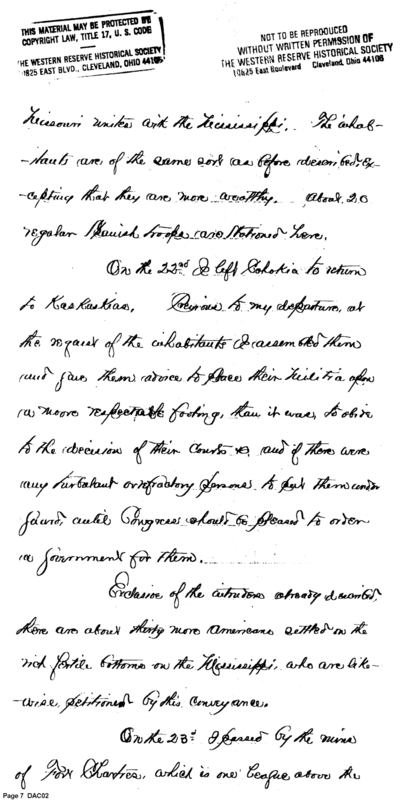 THIS MATERIAL MAY BE PROTECTED BY
COPYRIGHT LAW, TITLE 17, U. S. CODE
THE WESTERN RESERVE HISTORICAL SOCIETY
10825 EAST BLVD., CLEVELAND, OHIO 44106
NOT TO BE REPRODUCED
WITHOUT WRITTEN PERMISSION OF
THE WESTERN RESERVE HISTORICAL SOCIETY
10825 East Boulevard Cleveland, Ohio 44106
Missouri unites with the Mississippi. The inhab-
-itants are of the same sort as before described, ex-
-cepting that they are more wealthy. About 20
regular Spanish troops are stationed here.
On the 22nd I left Cohokia to return
to Kaskaskias. Previous to my departure, at
the request of the inhabitants I assembled them
and gave them advice to place their Militia upon
a more respectable footing, than it was, to abide
to the decision of their Courts &c and if there were
any turbulent or refractory persons to put them under
guard, until Congress should be pleased to order
a government for them.
Exclusive of the intruders already described,
there are about thirty more Americans settled on the
rich fertile bottoms on the Mississippi, who are like-
-wise, petitioned by this conveyance.
On the 23d I passed by the ruins
of Fort Chartres, which is one league above the
Page 7 DAC02